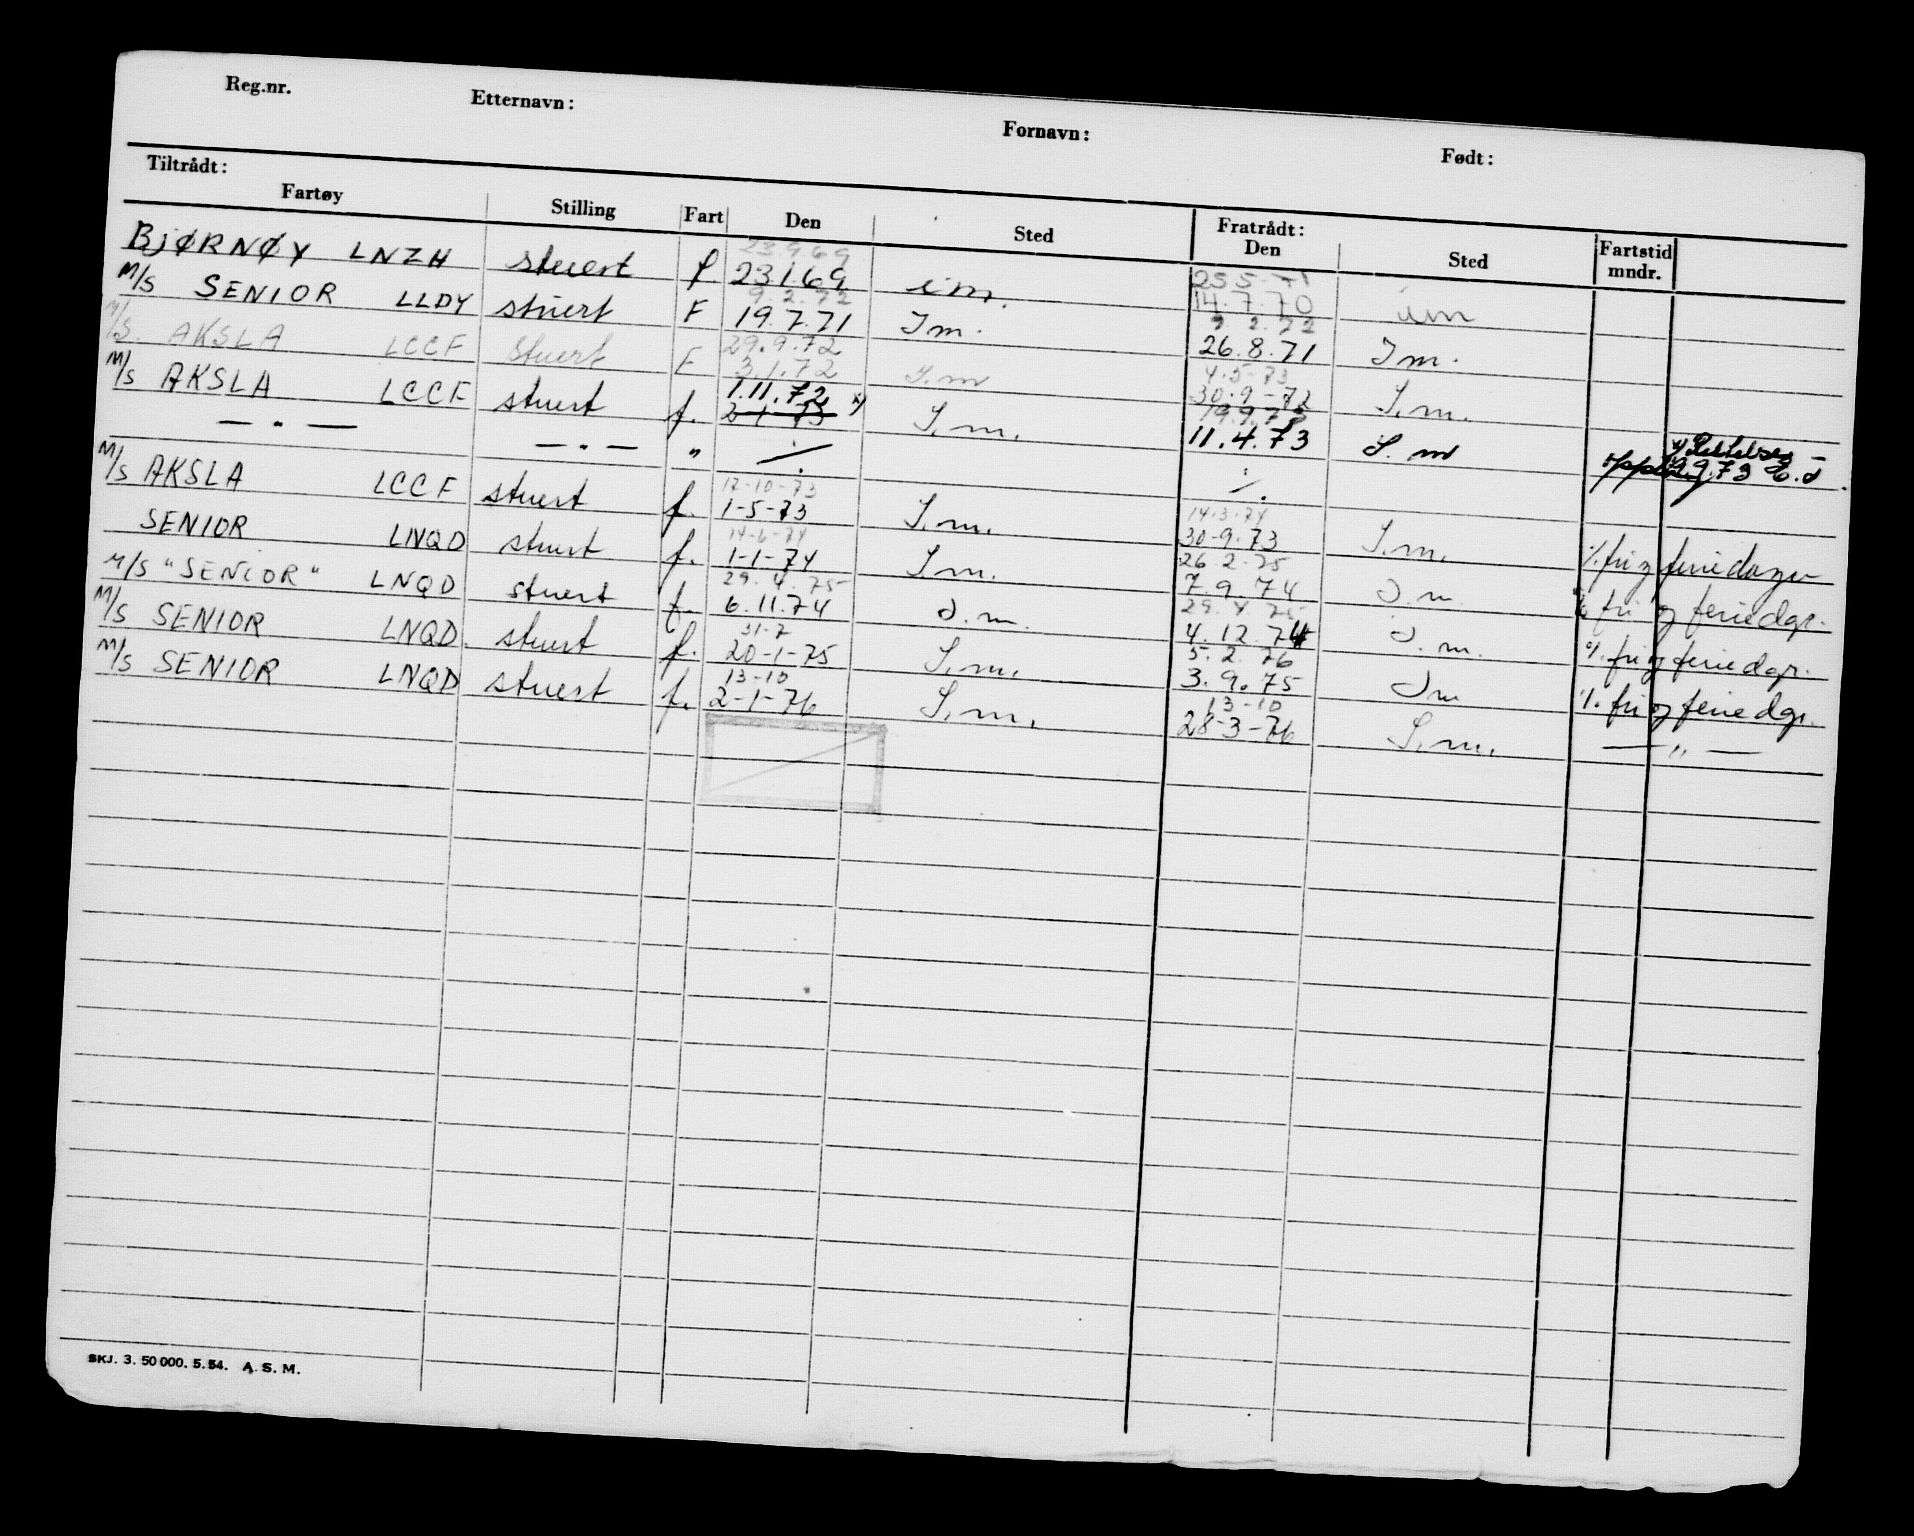 Reg.nr. Etternavn: Fornavn: Født:
Tiltrådt: Fratrådt:
Fartøy Stilling Fart Den Sted Den Sted Fartstid mndr.
23.9.69 25.5.71
BJØRNØY LNZH stuert f. 23.1.69 im. 14.7.70 im
9.2.72 9.2.72
M/S SENIOR LLDY stuert F 19.7.71 Im. 26.8.71 Im.
29.9.72 4.5-73
M/S. AKSLA LCCF Stuert F 3.1.72 I.m 30.9-72 I.m.
1.11.72 x) 19.9.73
M/S AKSLA LCCF stuert f. 2-1-73 I.m. 11.4.73 I.m 19.9.73
— " — — " — " ./. ./.
17-10-73 14-3-74
M/S AKSLA LCCF stuert f. 1-5-73 I.m. 30-9.73 I.m. ./. fri og feriedager
14-6-74 26-2-75
SENIOR LNQD stuert f. 1-1-74 I.m. 7.9.74 I.m. ./. fri og feriedgr.
29.4.75 29.4.75
M/S "SENIOR" LNQD stuert f. 6.11.74 I.m. 4.12.74 I.m. ./. fri og feriedgr.
31-7 5.2.76
M/S SENIOR LNQD. stuert f. 20-1-75 I.m. 3.9.75 Im ./. fri og feriedgr.
13-10 13-10
M/S SENIOR LNQD stuert f. 2-1-76 I.m. 28-3-76 I.m. — " —
SKJ. 3. 50 000. 5. 54. A. S. M.